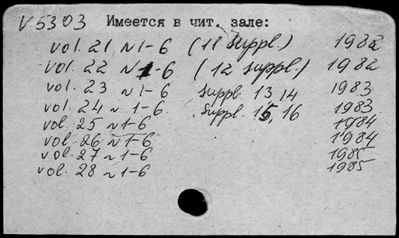 V 5303 Имеется в чит. зале:
vol. 21 N1-6 (11 suppl.) 1982
vol. 22 N1-6 (12 suppl.) 1982
vol. 23 N1-6 suppl. 13,14 1983
vol. 24 N 1-6 suppl. 15,16 1983
vol. 25 N1-6 1984
vol. 26 N1-6 1984
vol. 27 N 1-6 1985
vol. 28 N1-6 1985